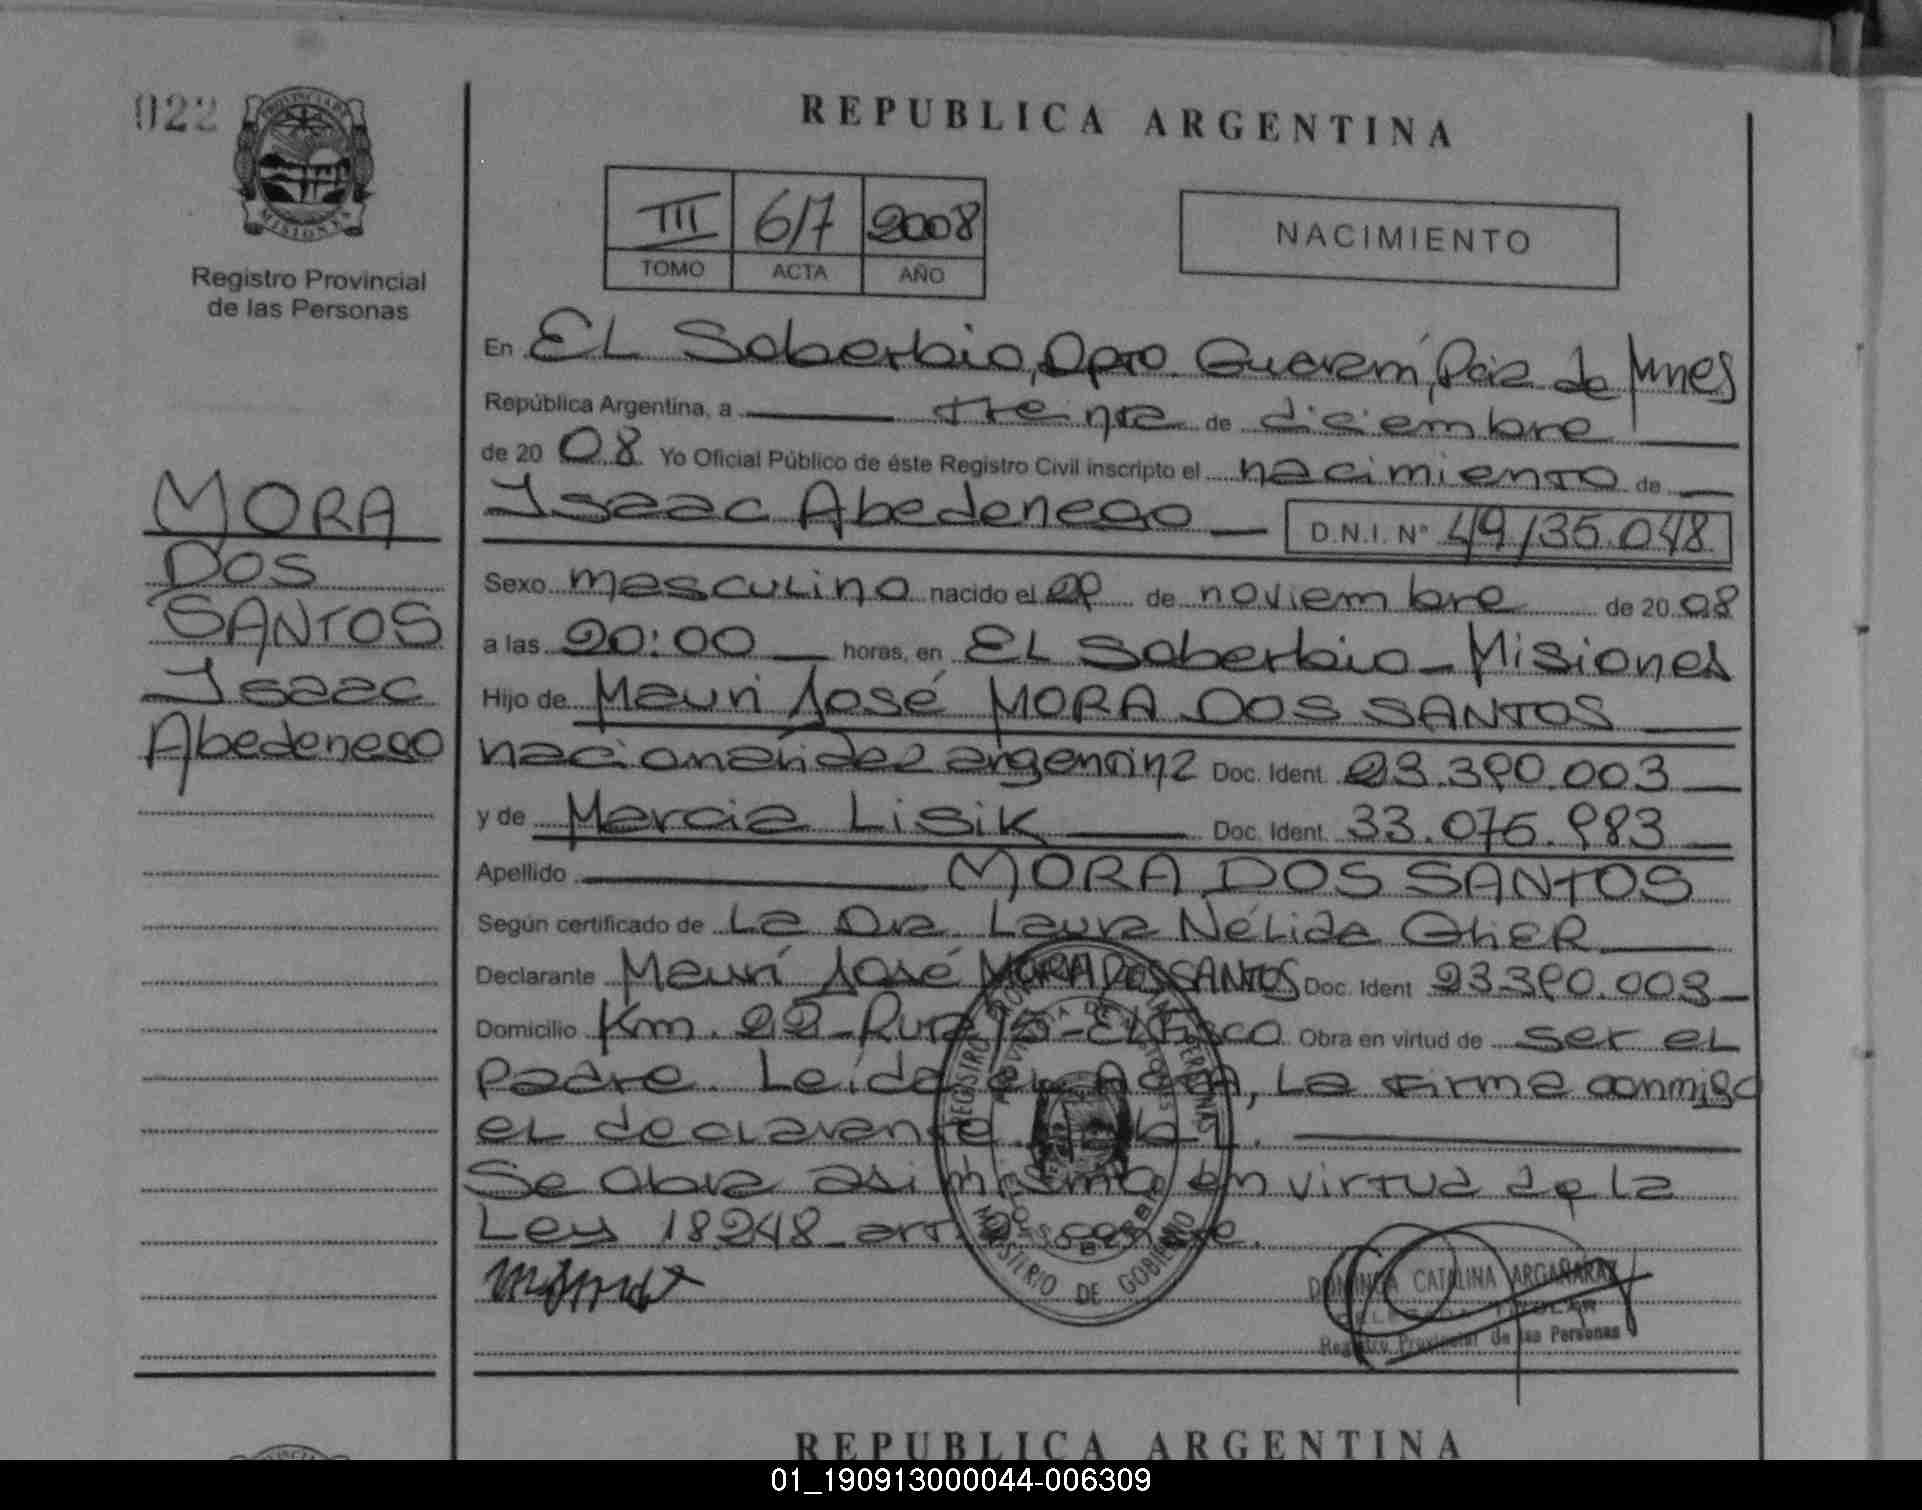 022
PROVINCIA DE
MISIONES
Registro Provincial
de las Personas
REPUBLICA ARGENTINA
III 617 2008
TOMO ACTA AÑO
NACIMIENTO
En EL Soberbio, Dpto. Guaraní, Pcia de Mnes
República Argentina, a treinta de diciembre
de 20 08 Yo Oficial Público de éste Registro Civil inscripto el nacimiento de
Isaac Abedenego D.N.I. Nº 49135.048
MORA
DOS
SANTOS
Isaac
Abedenego
Sexo masculino nacido el 29 de noviembre de 20 08
a las 20:00 horas, en EL Soberbio - Misiones
Hijo de Mauri José MORA DOS SANTOS
nacionalidad argentina Doc. Ident. 23.390.003
y de Marcia Lisik Doc. Ident. 33.075.983
Apellido MORA DOS SANTOS
Según certificado de La Dra. Laura Nélida
Declarante Maurí José MORA DOS SANTOS Doc. Ident 23.390.003
Domicilio Km. 22 - Ruta 15 - EL Fisco Obra en virtud de ser el
padre. Leída el Acta, La firma conmigo
el declarante.
Se obra asimismo en virtud de la
Ley 18248 art.
DOMINGA CATALINA ARGAÑARAZ
Registro Provincial de las Personas
MINISTERIO DE GOBIERNO
REPUBLICA ARGENTINA
01_190913000044-006309